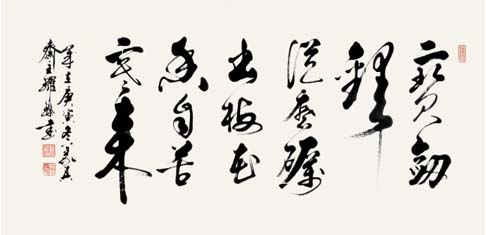 寶劍
鋒
從磨礪
出梅花
香自苦
寒來
齋主耀